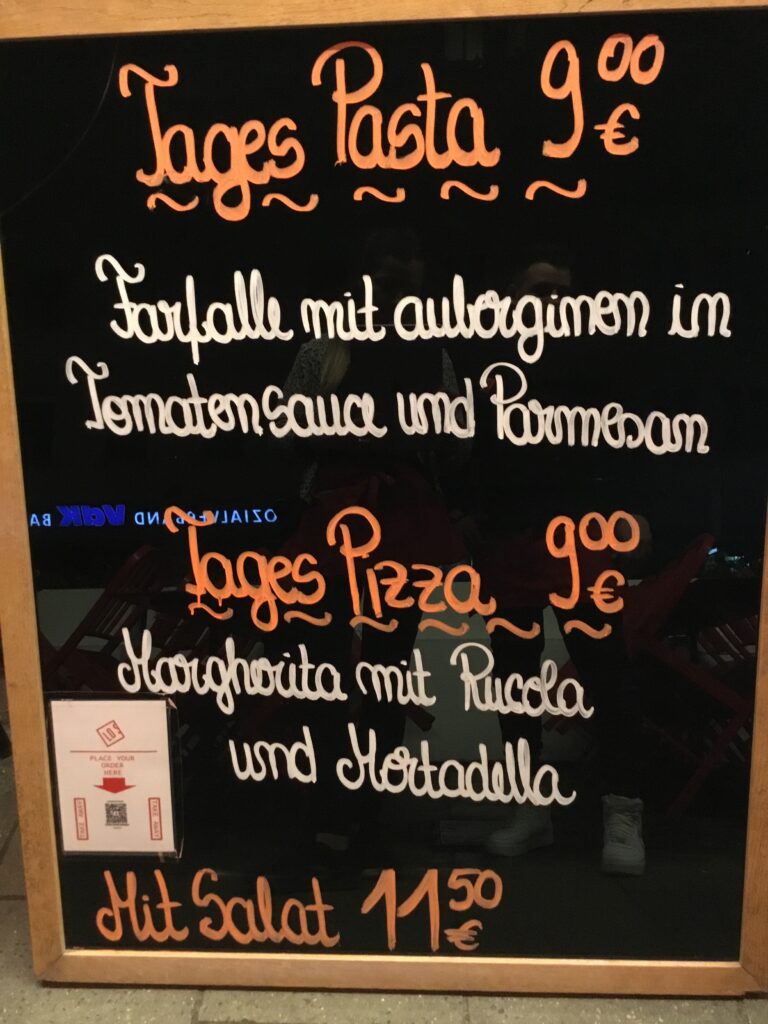 Tages Pasta 9⁰⁰ €
Farfalle mit auberginen in
Tomatensauce und Parmesan
OZIALVERBAND VdK BA
Tages Pizza 9⁰⁰ €
Margherita mit Rucola
und Mortadella
PLACE YOUR
ORDER
HERE
TAKE AWAY
Mit Salat 11⁵⁰ €